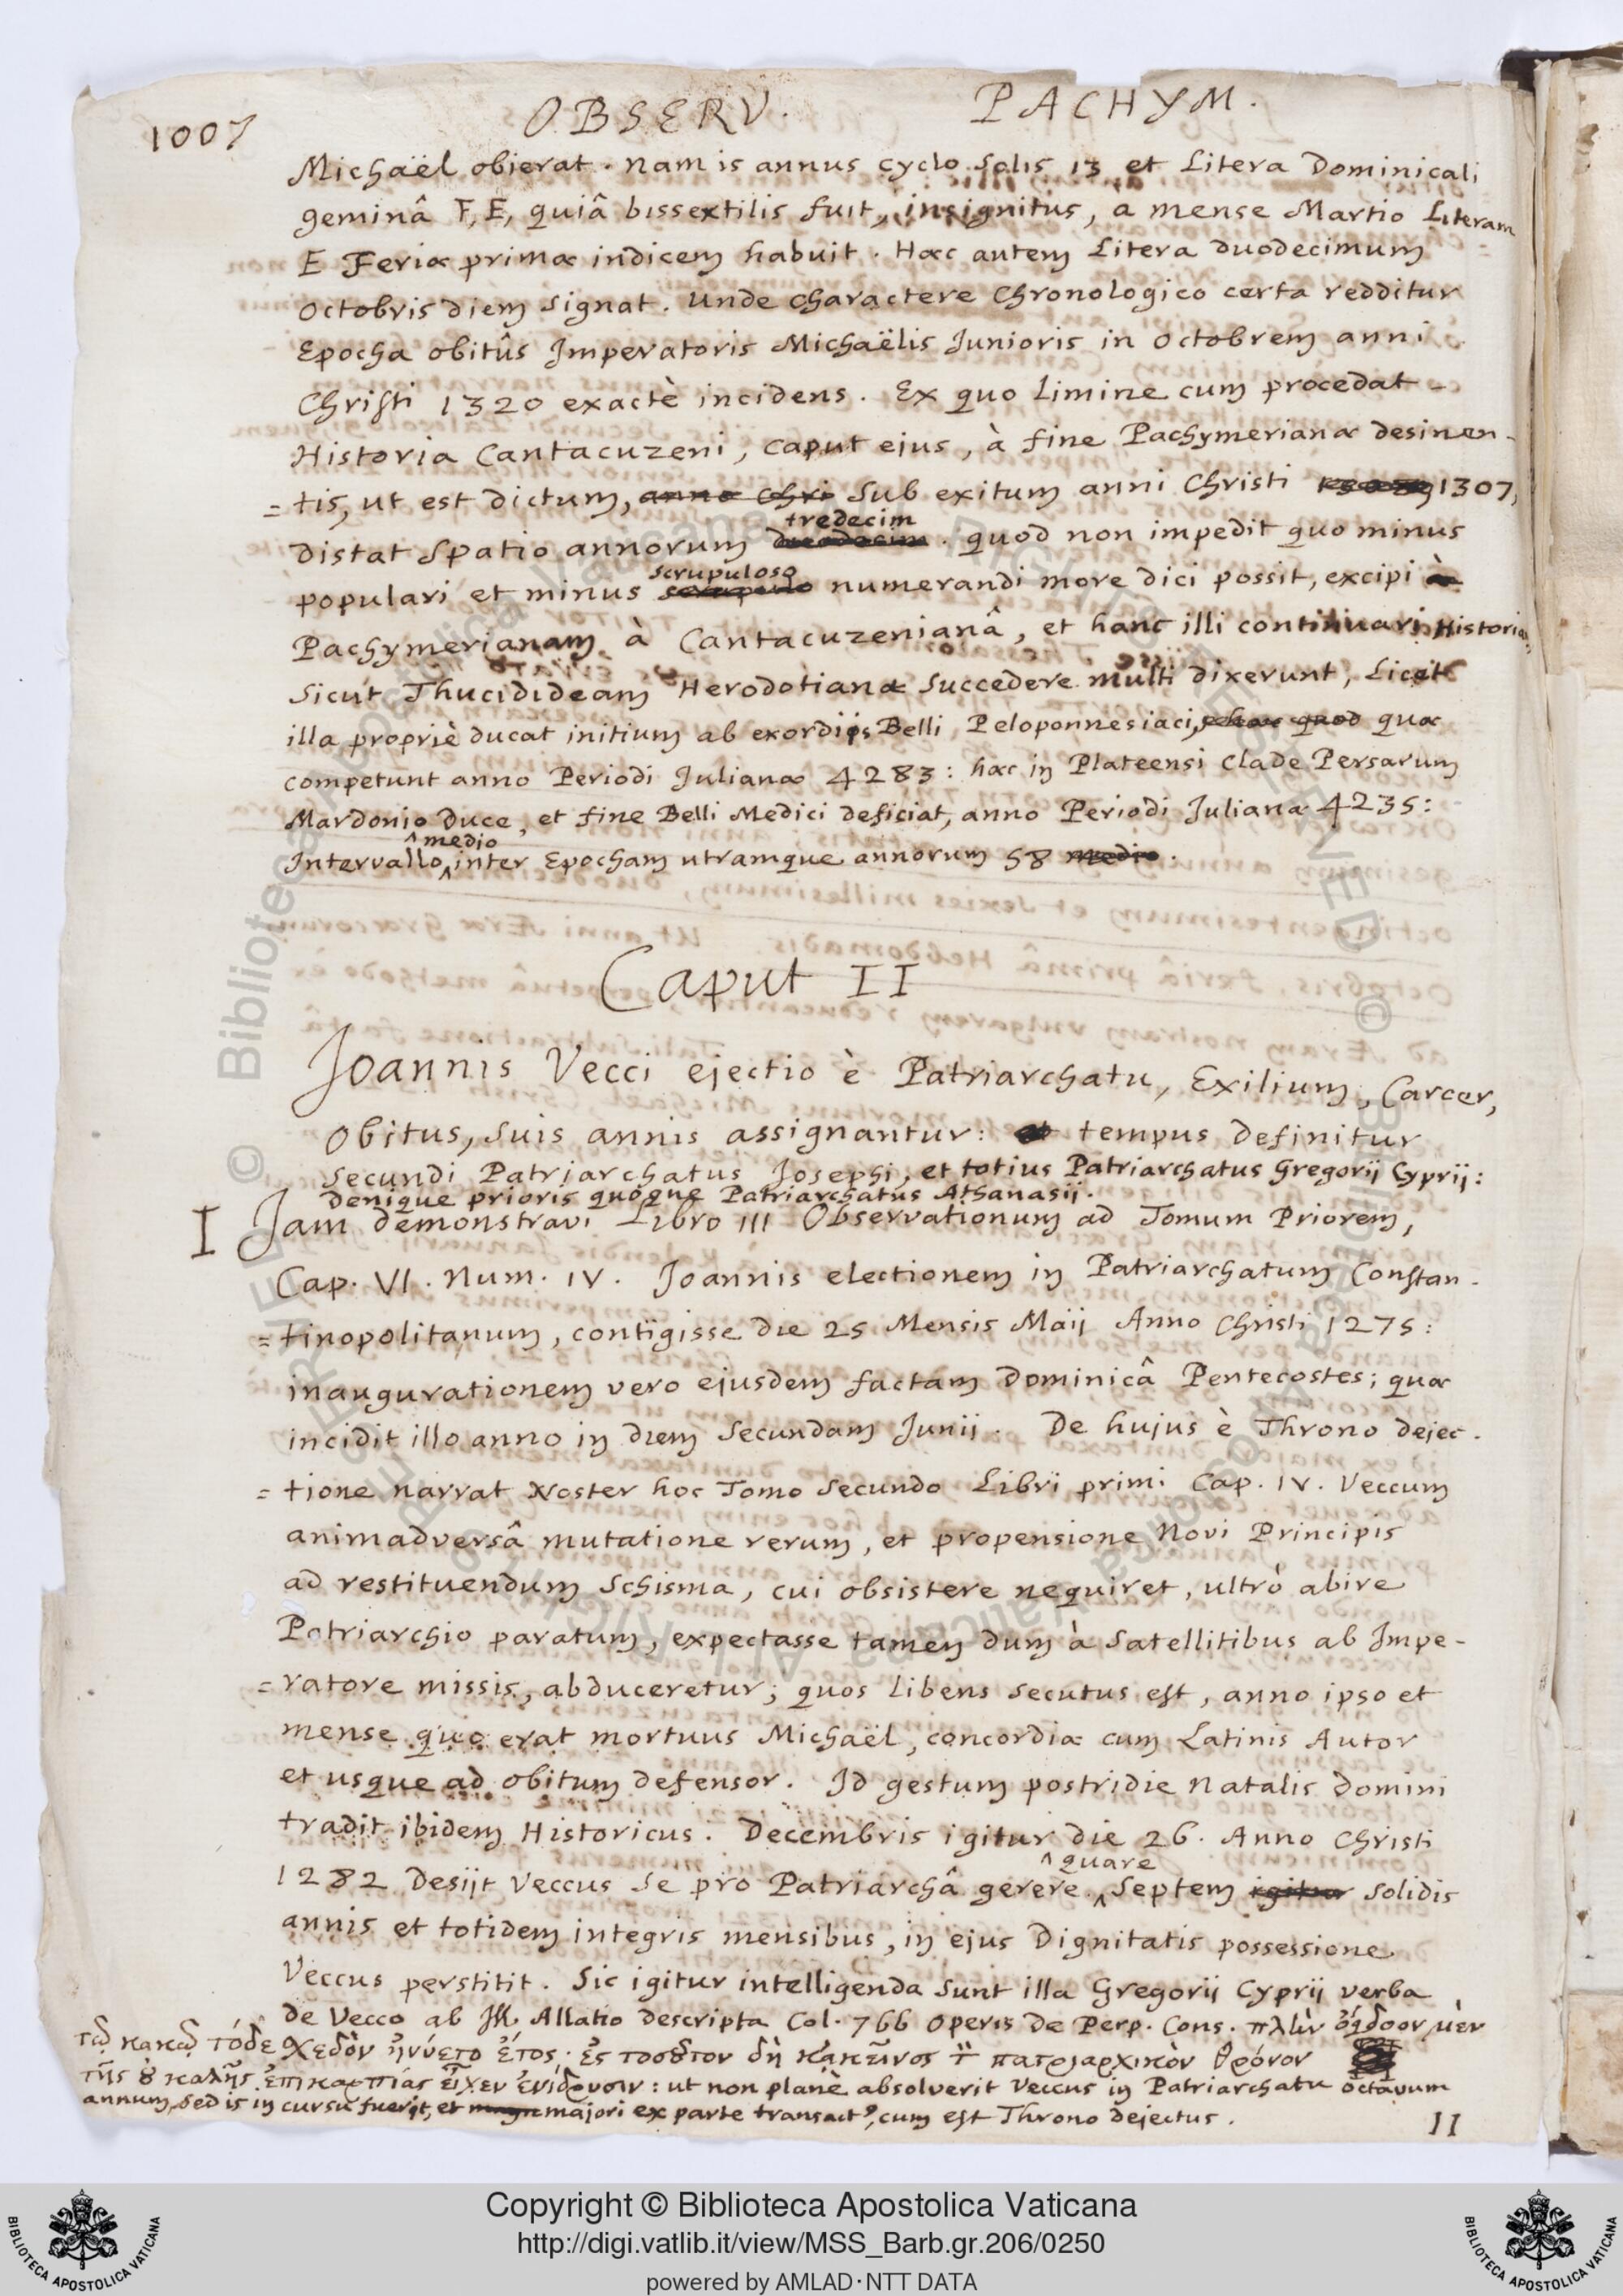 1007
OBSERV. PACHYM.
Michaël obierat. Nam is annus cyclo Solis 13 et Litera Dominicali
geminâ F, E, quiâ bissextilis fuit, insignitus, a mense Martio Literam
E Feriæ primæ indicem habuit. Hæc autem Litera duodecimum
Octobris diem signat. Unde charactere Chronologico certa redditur
Epocha obitûs Imperatoris Michaëlis Junioris in Octobrem anni
Christi 1320 exactè incidens. Ex quo Limine cum procedat
Historia Cantacuzeni, caput ejus, à fine Pachymerianæ desinen-
=tis, ut est dictum, anno Chri sub exitum anni Christi 1307,
tredecim
distat spatio annorum duodecim. quod non impedit quo minus
scrupuloso
populari et minus scrupulo numerandi more dici possit, excipi à
Pachymerianam à Cantacuzenianâ, et hanc illi continuari Historiam,
sicut Thucidideam Herodotianæ succedere multi dixerunt, Licet
illa propriè ducat initium ab exordijs Belli Peloponnesiaci, quod quæ
competunt anno Periodi Julianæ 4283: hæc in Plateensi Clade Persarum
Mardonio Duce, et fine Belli Medici deficiat, anno Periodi Julianæ 4235:
^medio
Intervallo ^ inter Epocham utramque annorum 58 medio.
Caput II
Joannis Vecci ejectio è Patriarchatu, Exilium, Carcer,
Obitus, suis annis assignantur: et tempus definitur
secundi Patriarchatus Josephi, et totius Patriarchatus Gregorij Cyprij:
Denique prioris quoque Patriarchatus Athanasij.
I Jam demonstravi Libro III Observationum ad Tomum Priorem,
Cap. VI. Num. IV. Joannis electionem in Patriarchatum Constan-
=tinopolitanum, contigisse die 25 Mensis Maij Anno Christi 1275:
inaugurationem vero ejusdem factam Dominicâ Pentecostes; quæ
incidit illo anno in diem Secundam Junij. De hujus è Throno dejec-
=tione narrat Noster hoc Tomo Secundo Libri primi Cap. IV. Veccum
animadversâ mutatione rerum, et propensione Novi Principis
ad restituendum Schisma, cui obsistere nequiret, ultrò abire
Patriarchio paratum, expectasse tamen dum à Satellitibus ab Impe-
=ratore missis, abduceretur; quos libens secutus est, anno ipso et
mense quo erat mortuus Michaël, concordiæ cum Latinis Autor
et usque ad obitum defensor. Id gestum postridie Natalis Domini
tradit ibidem Historicus. Decembris igitur die 26. Anno Christi
^quare
1282 Desijt Veccus se pro Patriarchâ gerere. ^ Septem igitur solidis
annis et totidem integris mensibus, in ejus Dignitatis possessione
Veccus perstitit. Sic igitur intelligenda sunt illa Gregorij Cyprij verba
de Vecco ab Allatio descripta Col. 766 Operis De Perp. Cons. πλὴν ὄγδοον μὲν
τῷ κακῷ τόδε χεδὸν ἠνύετο ἔτος· ἐς τοσοῦτον δὴ κἀκεῖνος τ̈ πατριαρχικὸν θρόνον
τῆς οὐ καλῆς ἐπικαρπίας εἶχεν ἐνίδρυσιν: ut non planè absolverit Veccus in Patriarchatu octavum
annum, sed is in cursu fuerit, et magn majori ex parte transactꝰ, cum est Throno dejectus.
II
Copyright © Biblioteca Apostolica Vaticana
http://digi.vatlib.it/view/MSS_Barb.gr.206/0250
powered by AMLAD·NTT DATA
BIBLIOTECA APOSTOLICA VATICANA
BIBLIOTECA APOSTOLICA VATICANA